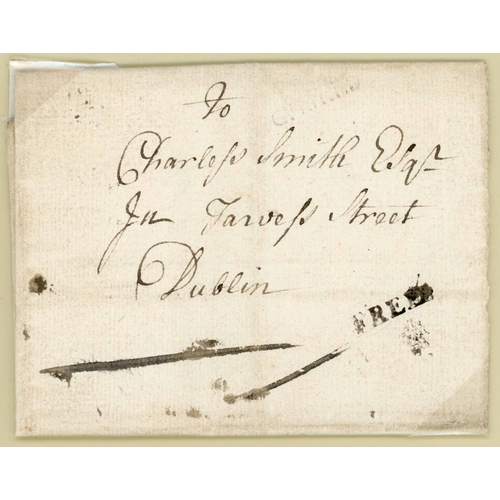 To
Charless Smith Esqr
In Jarvess Street
Dublin
FREE